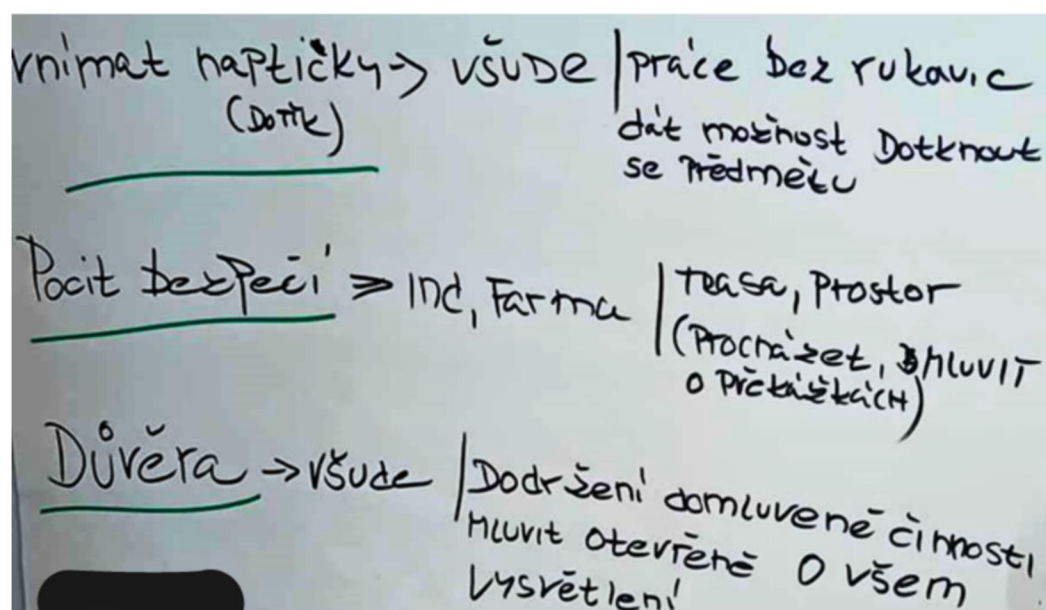 vnímat haptičky → všude | práce bez rukavic
(Dotik) dát možnost Dotknout
se předmětu
Pocit bezpečí → Ind, Farma | Trasa, Prostor
(Procházet, Mluvit
o překážkách)
Důvěra → všude | Dodržení domluvené činnosti
Mluvit otevřeně o všem
Vysvětlení